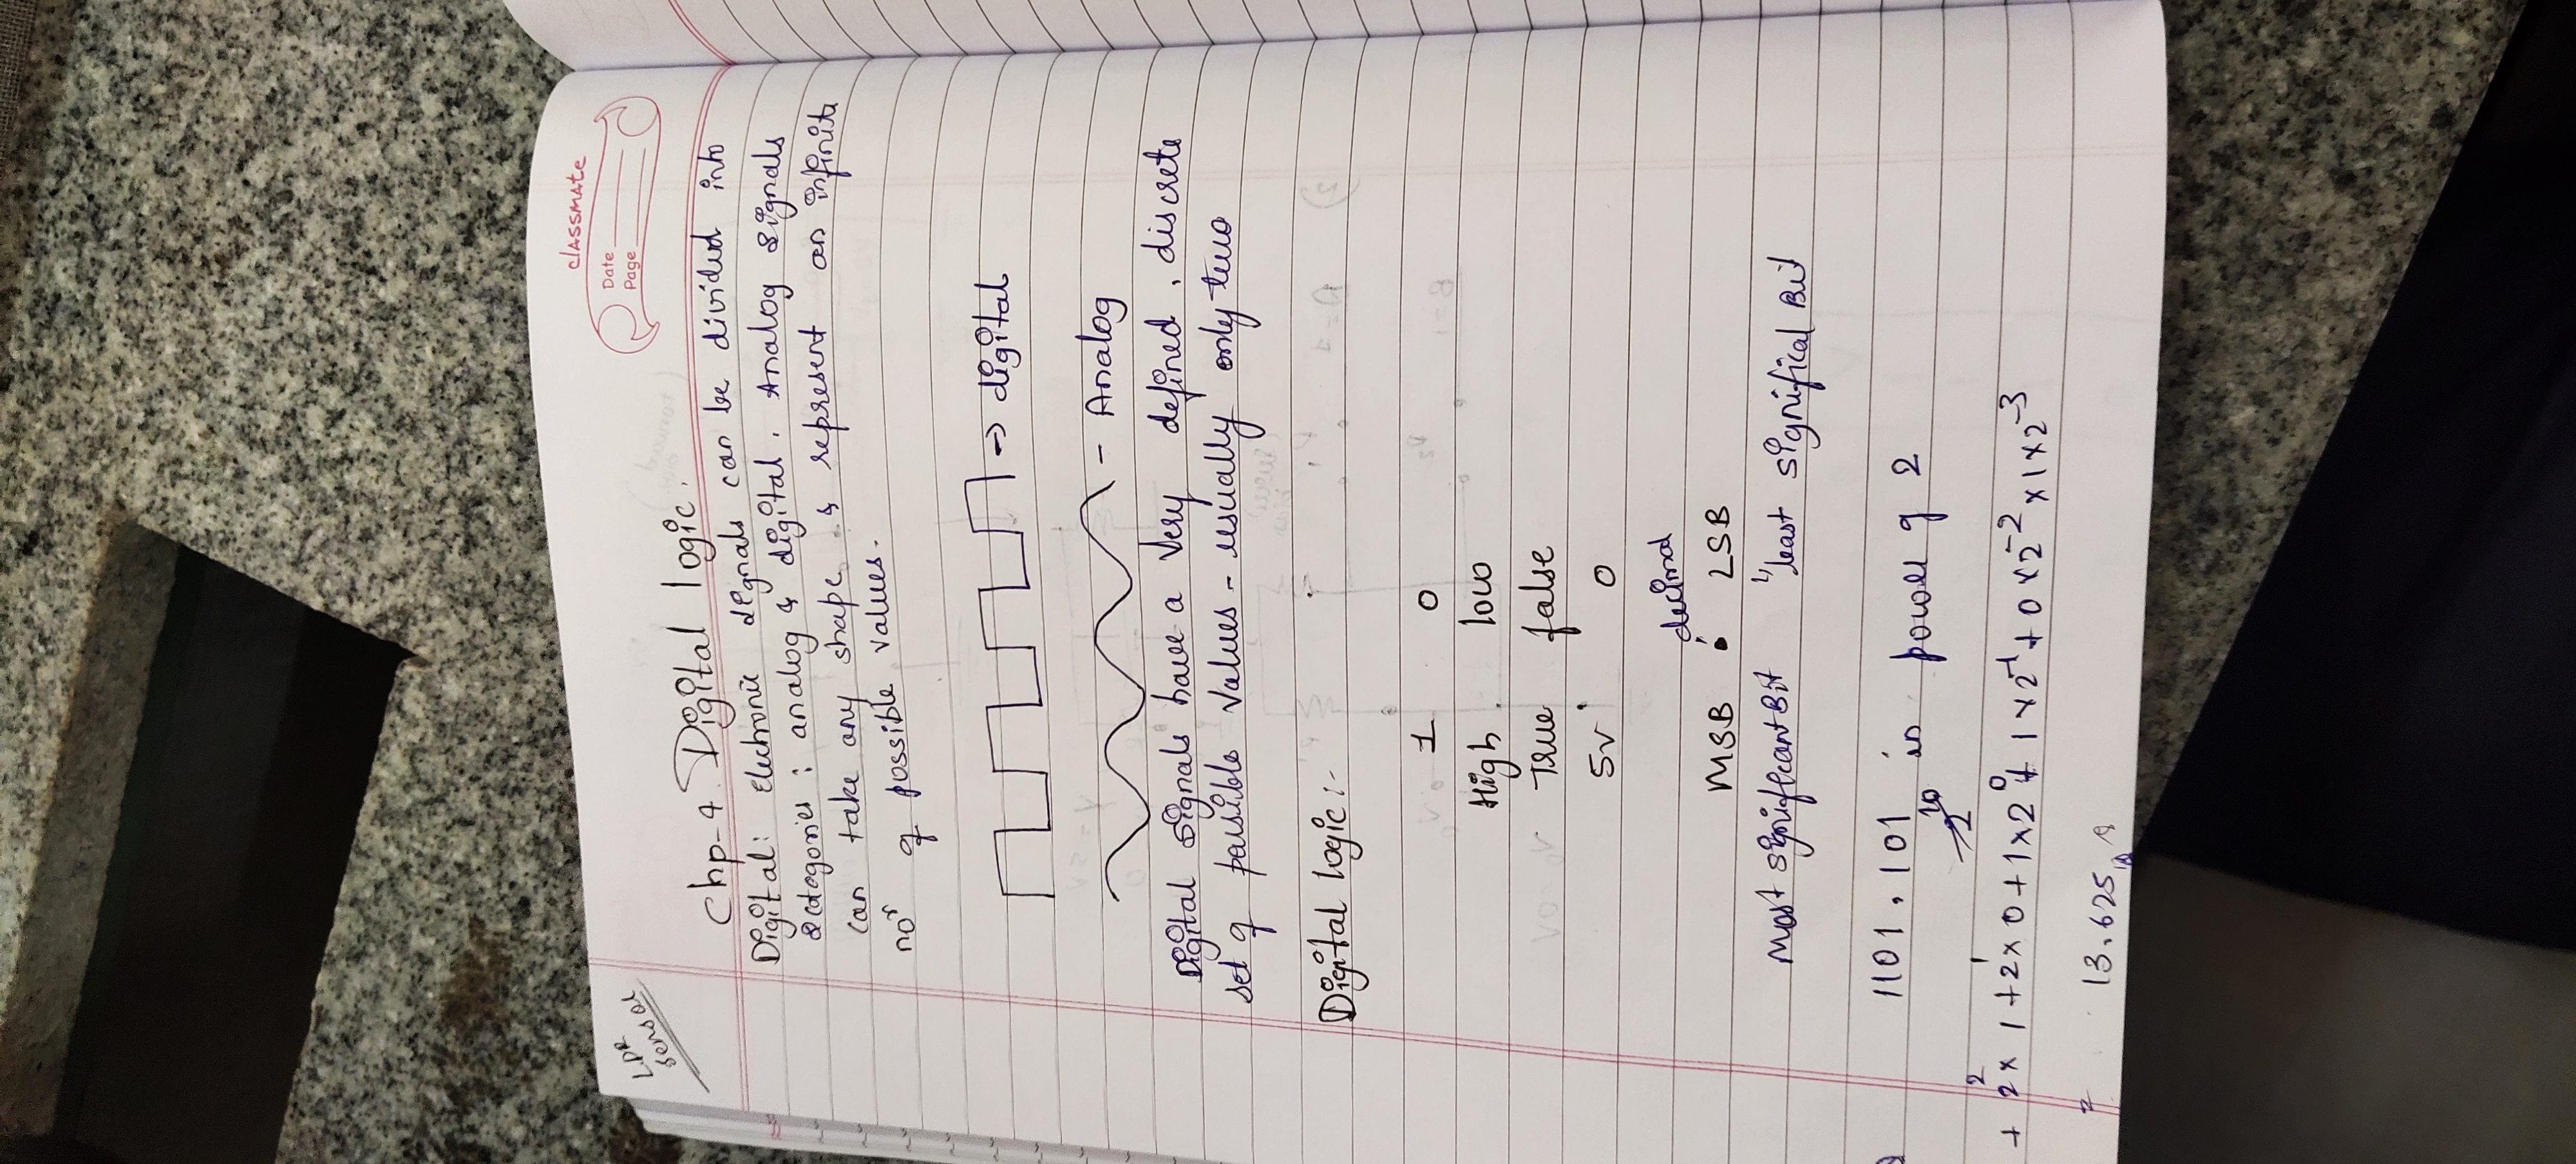 classmate
Date
Page
LDR
sensor
Chp-4 Digital logic.
Digital: Electronic signals can be divided into
2 categories : analog & digital. Analog signals
can take any shape & represent an infinite
noʳ of possible values.
→ digital
- Analog
Digital signals have a very defined, discrete
set of possible values - usually only two
Digital logic :-
1 0
High low
True false
5v 0
decimal
MSB . LSB
Most significant Bit least significal Bit
1101.101 in power of 2
+ 2² x 1 + 2¹ x 0 + 1 x 2⁰ + 1 x 2⁻¹ + 0 x 2⁻² x 1 x 2⁻³
= 13.625